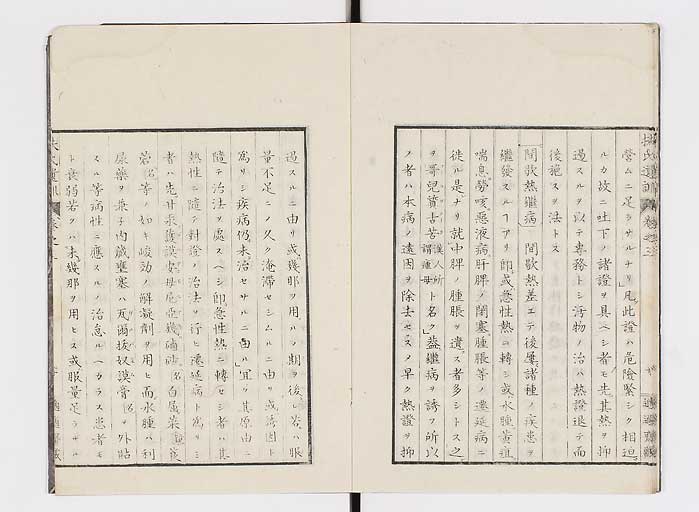 營ムニ足ラサルナリ凡此證ハ危險緊シク相迫
ルカ故ニ吐下ノ諸證ヲ具ヘシ者モ先其熱ヲ抑
遏スルヲ以テ專務トシ汚物ノ治ハ熱證退テ而
後施スヲ法トス
間歇熱繼病 間歇熱差エテ後屢諸種ノ疾患ヲ
繼發スルヿアリ即或急性熱ニ轉シ或水腫黃疸
喘息勞咳惡液病肝脾ノ閉塞腫脹等ノ遷延病ニ
徙ル是ナリ就中脾ノ腫脹ヲ遺ス者多シトス之
ヲ哥兒箇古苦漢人所謂瘧母ト名ク蓋繼病ヲ誘フ所以
ノ者ハ本病ノ遠因ヲ除去セスノ早ク熱證ヲ抑
遏スルニ由リ或幾那ヲ用ハノ期ヲ後レ若ハ服
量不足ニノ久ク淹滯セシムルニ由リ或誘因ト
爲リシ疾病仍未治セサルニ由ル宜ク其原由ニ
隨テ治法ヲ處スヘシ即急性熱ニ轉セシ者ハ其
熱性ニ隨テ對證ノ治法ヲ行ヒ遷延病ト爲リシ
者ハ先
等ノ如キ峻効ノ解凝劑ヲ用ヒ而水腫ハ利
尿藥ヲ兼子内臟壅塞ハ
スル等病性ニ應スルノ治怠ルヘカラス患者モ
ト衰弱若クハ幾那ヲ用ヒス或服量足ラサル